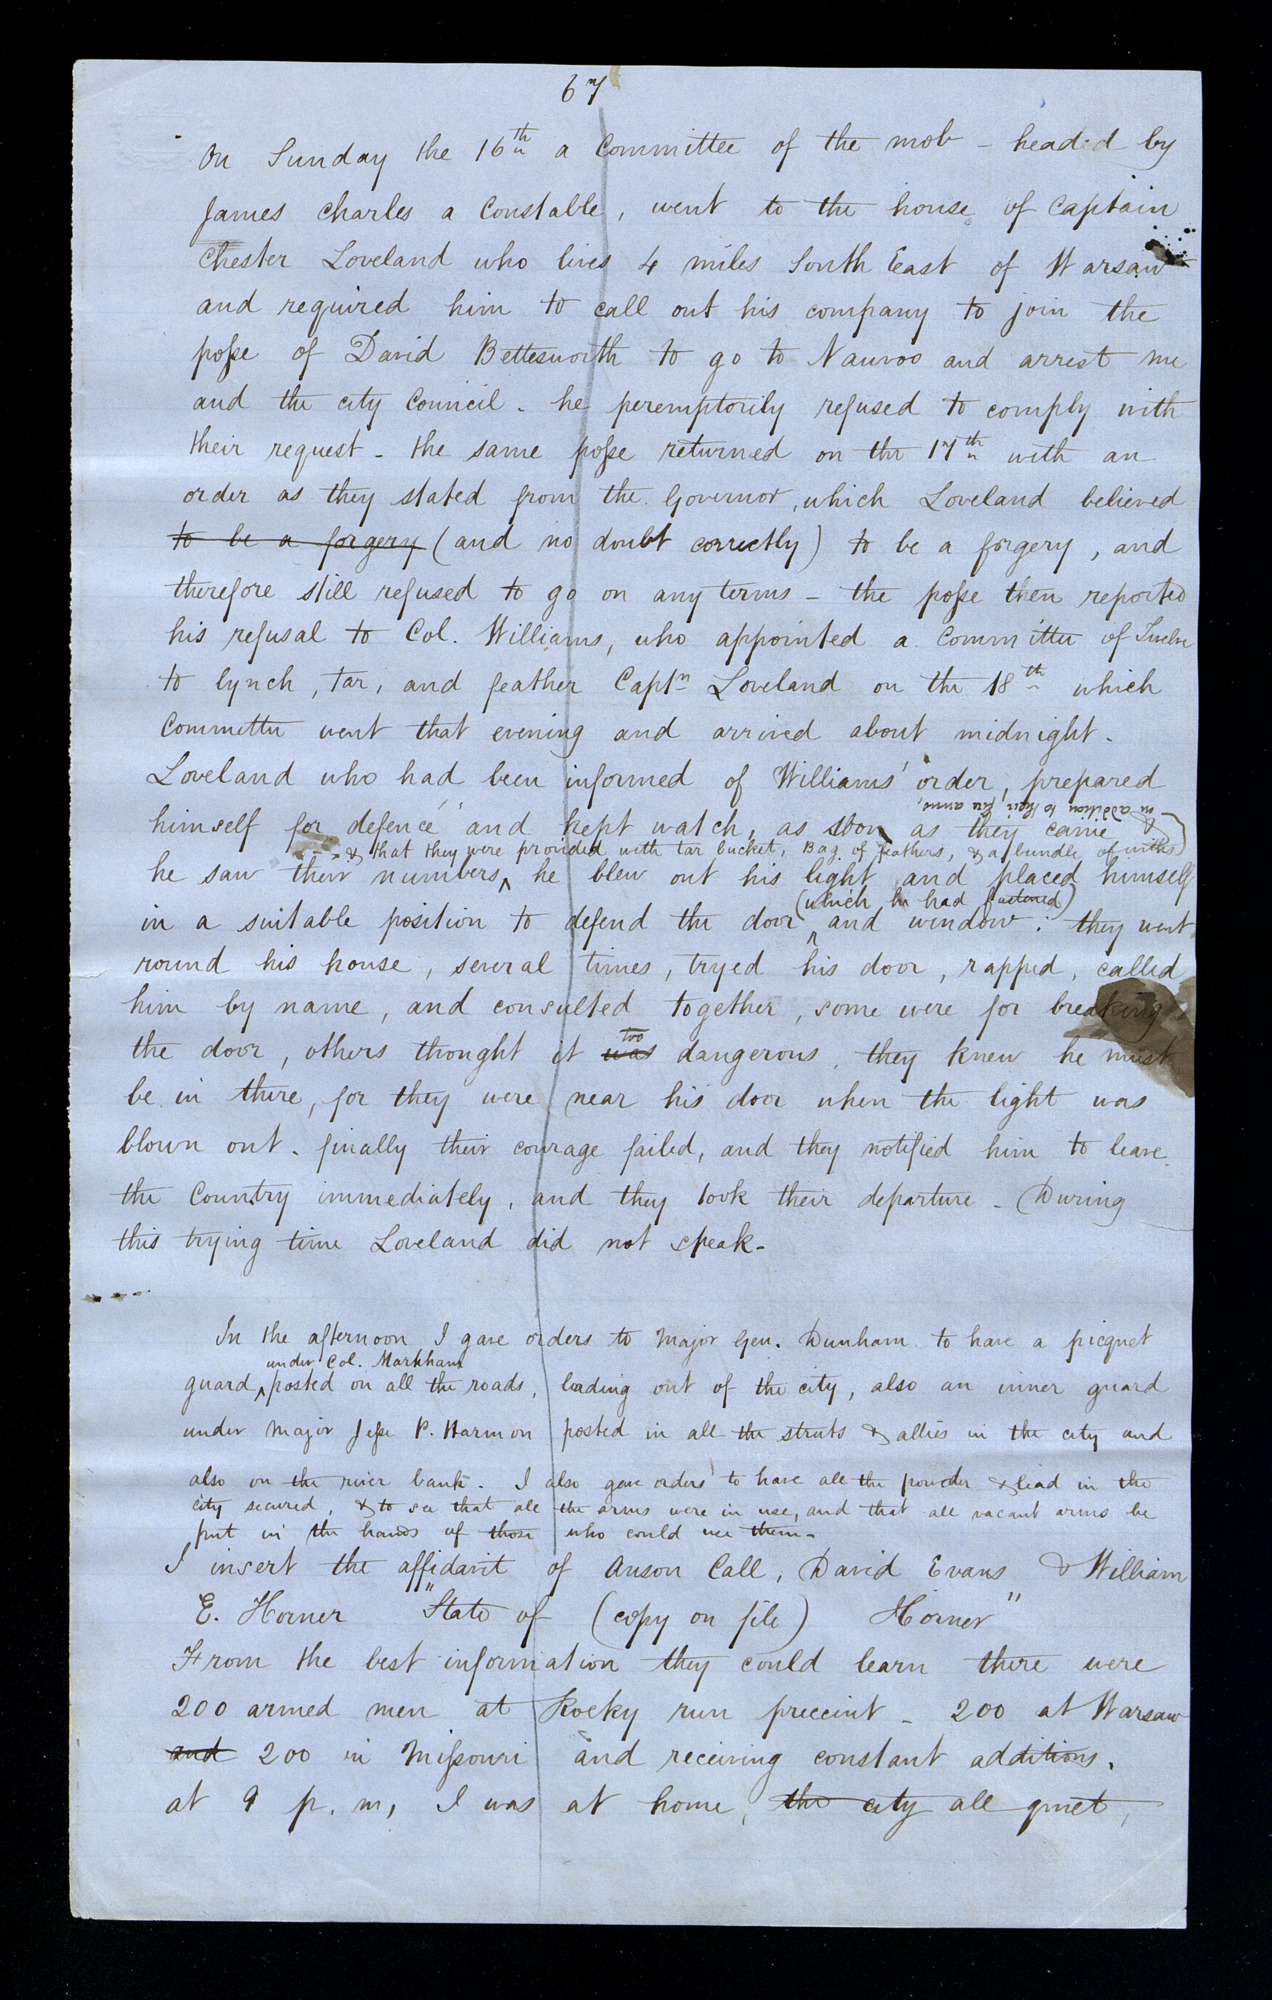 67
On Sunday the 16th a Committee of the mob – headed by
James Charles a Constable, went to the house of Captain
Chester Loveland who lives 4 miles South East of Warsaw
and required him to call out his company to join the
posse of David Bettesworth to go to Nauvoo and arrest me
and the city Council. he peremptorily refused to comply with
their request – the same posse returned on the 17th with an
order as they stated from the Governor, which Loveland believed
to be a forgery (and no doubt correctly) to be a forgery, and
therefore still refused to go on any terms – the posse then reported
his refusal to Col. Williams, who appointed a Committee of Twelve
to lynch, tar, and feather Captn Loveland on the 18th which
Committee went that evening and arrived about midnight.
Loveland who had been informed of Williams' order, prepared
in addition to their fire arms,
himself for defence and kept watch, as soon as they came &
& that they were provided with tar bucket, Bag of feathers, & a bundle of withs)
he saw their numbers, he blew out his light and placed himself
(which he had fastened)
in a suitable position to defend the door and window: they went
round his house, several times, tryed his door, rapped, called
him by name, and consulted together, some were for breaking
too
the door, others thought it was dangerous, they knew he must
be in there, for they were near his door when the light was
blown out. finally their courage failed, and they notified him to leave
the Country immediately, and they took their departure. During
this trying time Loveland did not speak.
In the afternoon I gave orders to Major Gen. Dunham to have a picquet
under Col. Markham
guard, posted on all the roads, leading out of the city, also an inner guard
under Major Jesse P. Harmon posted in all the streets & allies in the city and
also on the river bank. I also gave orders to have all the powder & lead in the
city secured, & to see that all the arms were in use, and that all vacant arms be
put in the hands of those who could use them.
I insert the affidavit of Anson Call, David Evans & William
E. Horner "State of (copy on file) Horner"
From the best information they could learn there were
200 armed men at Rocky run precinct – 200 at Warsaw
and 200 in Missouri and receiving constant additions.
at 9 p. m, I was at home, the city all quiet,